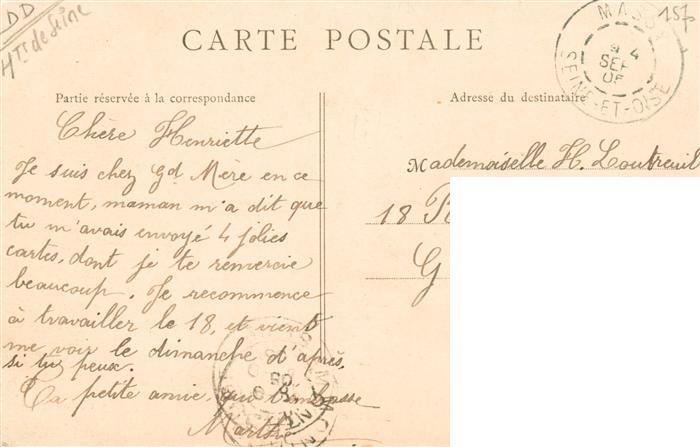 DD
Hts de Seine
CARTE POSTALE
157
SEP
SEINE-ET-OISE
Partie réservée à la correspondance
Adresse du destinataire
Chère Henriette
Je suis chez Gd Mère en ce
moment, maman m'a dit que
tu m'avais envoyé 4 jolies
cartes, dont je te remercie
beaucoup. Je recommence
à travailler le 18, et vient
me voir le dimanche d'après,
si tu peux.
Ta petite amie qui t'embrasse
Marthe
Mademoiselle H. Loutreuil
18 R
G